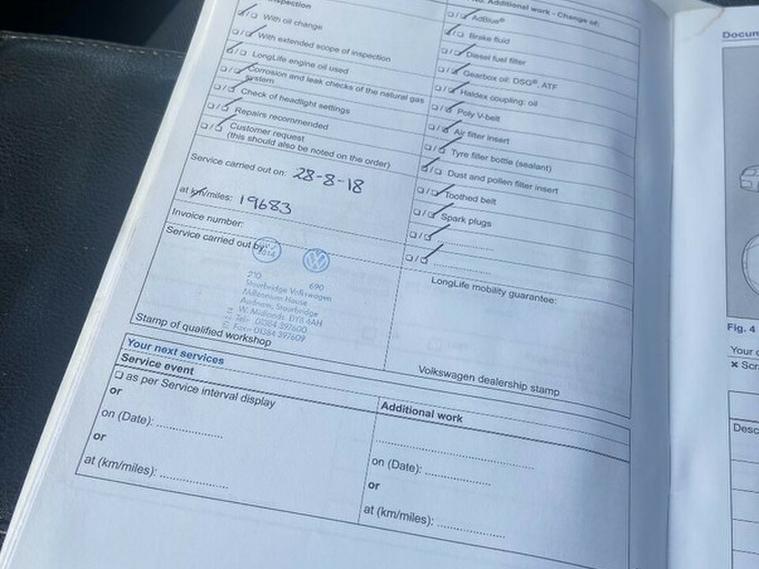 nspection
With oil change
With extended scope of inspection
LongLife engine oil used
Corrosion and leak checks of the natural gas
system
Check of headlight settings
Repairs recommended
Customer request
(this should also be noted on the order)
Service carried out on: 28-8-18
at km/miles: 19683
Invoice number:
Service carried out by:
210 690
Stourbridge Volkswagen
Millennium House
Audnam, Stourbridge
W. Midlands. DY8 4AH
Tel: 01384 397600
Fax: 01384 397609
Stamp of qualified workshop
Additional work - Change of:
AdBlue®
Brake fluid
Diesel fuel filter
Gearbox oil: DSG®, ATF
Haldex coupling: oil
Poly V-belt
Air filter insert
Tyre filler bottle (sealant)
Dust and pollen filter insert
Toothed belt
Spark plugs
LongLife mobility guarantee:
Volkswagen dealership stamp
Your next services
Service event
as per Service interval display
or
on (Date):
or
at (km/miles):
Additional work
on (Date):
or
at (km/miles):
Docum
Fig. 4
Your
Scr
Desc